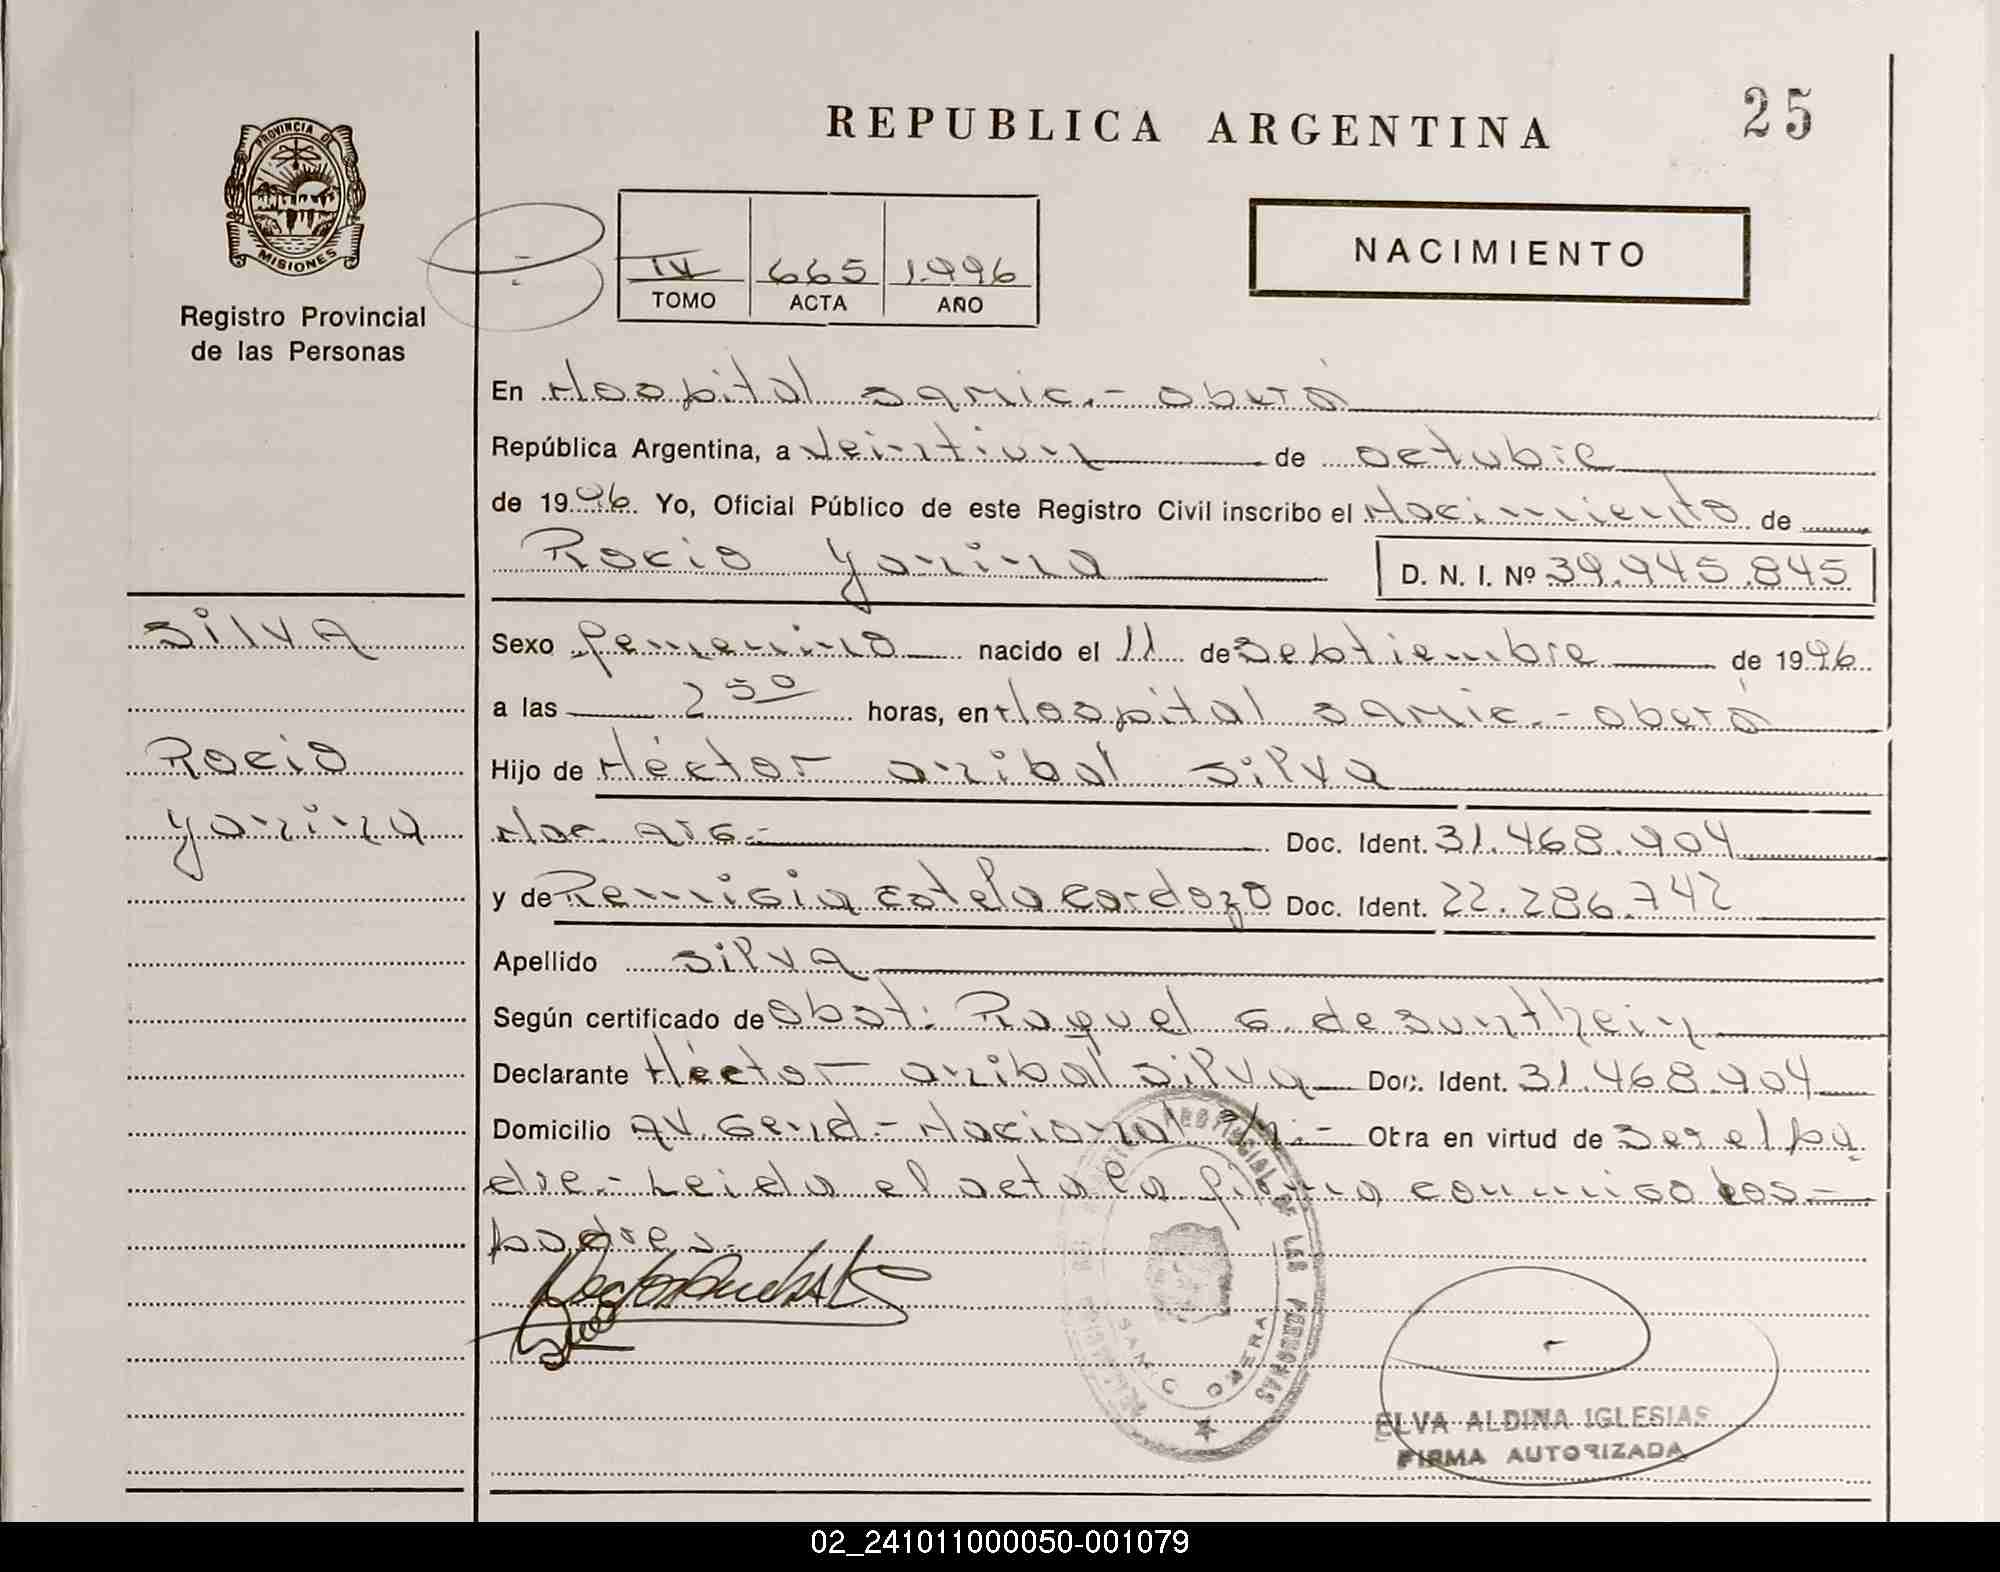 REPUBLICA ARGENTINA
25
PROVINCIA DE
MISIONES
Registro Provincial
de las Personas
IV 665 1.996
TOMO ACTA AÑO
NACIMIENTO
En Hospital Samic.- Oberá
República Argentina, a Veintiun de Octubre
de 1996 Yo, Oficial Público de este Registro Civil inscribo el Nacimiento de
Rocio Yanina
D. N. I. Nº 39.945.845
SilVA
Rocio
Yanina
Sexo femenino nacido el 11 de Septiembre de 1996
a las 2 50 horas, en Hospital Samic.- Oberá
Hijo de Héctor Anibal Silva
Nac. Arg.- Doc. Ident. 31.468.904
y de Remigia Catela Cardozo Doc. Ident. 22.286.742
Apellido SilVA
Según certificado de Obst: Raquel G. de Sunthein
Declarante Héctor Anibal Silva Doc. Ident. 31.468.904
Domicilio AV. Gend- Nacional s/n.- Obra en virtud de Ser el pa
dre.- Leida el acta la firma conmigo los-
padres.-
REGISTRO PROVINCIAL DE LAS PERSONAS
ELVA ALDINA IGLESIAS
FIRMA AUTORIZADA
02_241011000050-001079